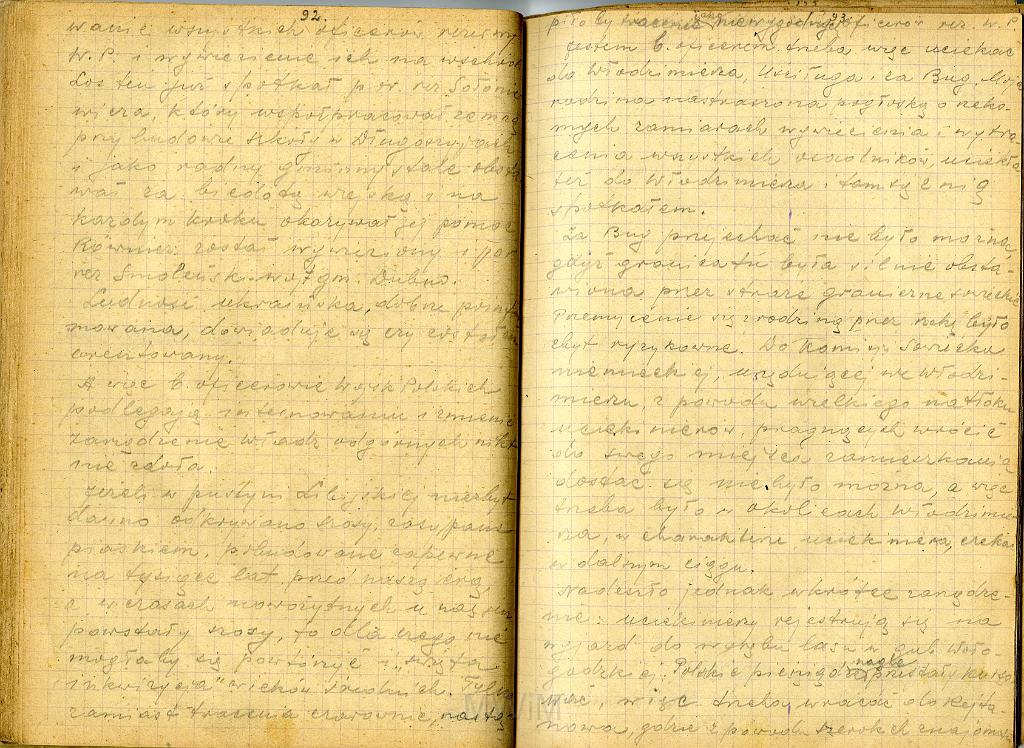 92.
wanie wszystkich oficerów rezerwy
W.P. i wywiezienie ich na wschód.
Los ten już spotkał por. rez.
który współpracował ze mną
przy budowie szkoły w
i jako radny gminny stale
wał za biedotą wiejską i na
każdym kroku okazywał jej pomoc
został wywieziony i por
rez Smoleński woj gm. Dubno.
Ludność ukraińska, dobrze poinfor
mowana, dowiaduje się czy zostałem
aresztowany.
A więc b. oficerowie Wojsk Polskich
podlegają internowaniu i zmienić
zarządzenie władz odgórnych nikt
nie zdoła.
Jeżeli w pustyni Libijskiej niezbyt
dawno odkrywano szosy, zasypane
piaskiem, pobudowane zapewne
na tysiące lat przed naszą erą,
a w czasach nowożytnych u nas
powstały szosy, to dlaczego nie
mogłaby się powtórzyć i „święta
inkwizycja" wieków średnich. Tylko
zamiast tracenia czarownic,
93.
piłoby tracenie niewygodnych oficerów rez. W.P.
Jestem b. oficerem, trzeba więc uciekać
do Włodzimierza, Uściługa i za Bug. Moja
rodzina nastraszona pogłoską o rzeko-
mych zamiarach wywiezienia i wytra-
cenia wszystkich osadników, uciekła
też do Włodzimierza i tam się z nią
spotkałem.
Za Bug przejechać nie było można,
gdyż granica tu była silnie obsta-
wiona przez straże graniczne sowieckie
Przemycenie się z rodziną przez rzekę było
zbyt ryzykowne. Do Komisji Sowiecko
niemieckiej, urzędującej we Włodzi-
mierzu, z powodu wielkiego natłoku
uciekinierów, pragnących wrócić
do swego miejsca zamieszkania
dostać się nie było można, a więc
trzeba było w okolicach Włodzimie
rza, w charakterze uciekiniera, czekać
w dalszym ciągu.
Nadeszło jednak wkrótce zarządze-
nie: uciekinierzy rejestrują się na
wyjazd do wyrębu lasu w gub. Woło-
godzkiej. Polskie pieniądze nagle przestały kurso
wać, więc trzeba wracać do Rejta-
nowa, gdzie z powodu szerokich znajomości